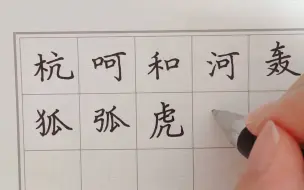 杭呵和河轰
狐弧虎